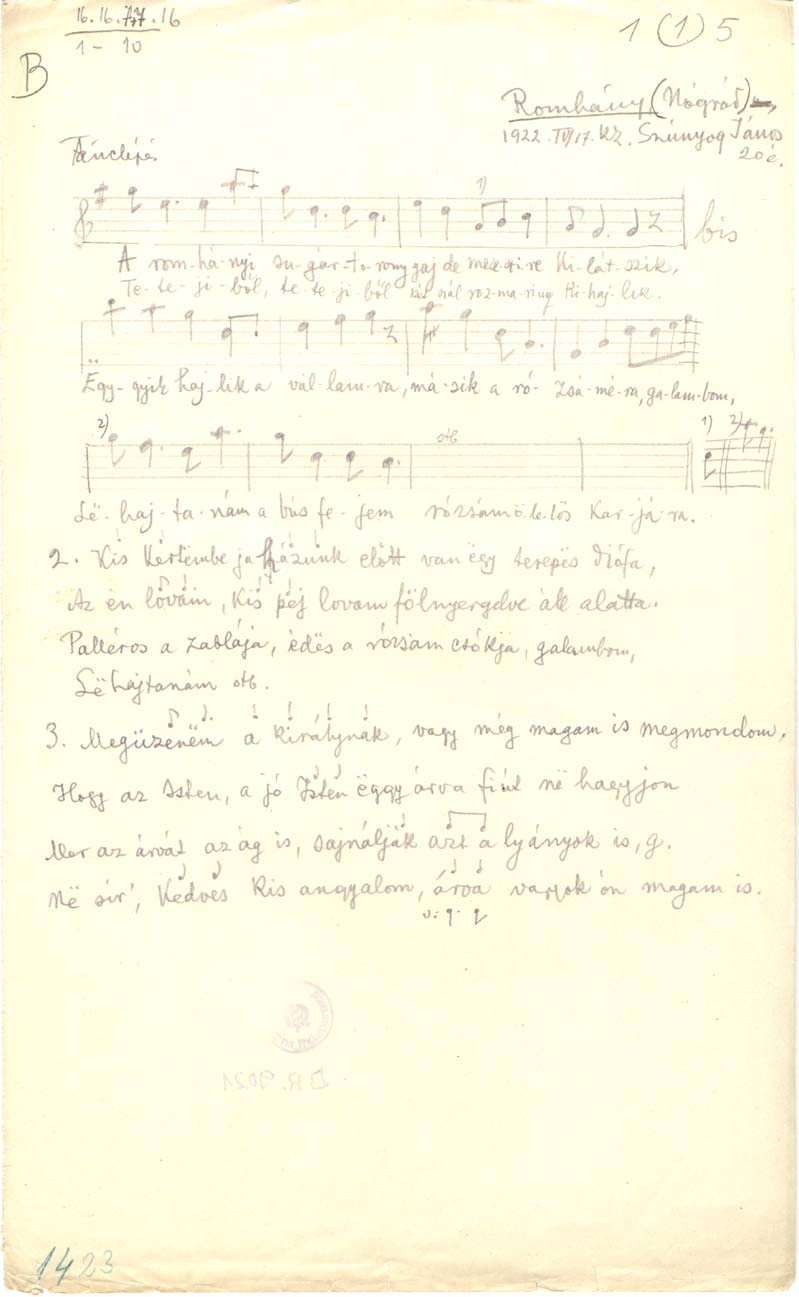 16. 16. 77. 16
1 – 10
1 (1) 5
B
Romhány (Nógrád)
1922. IV/17. Kz. Szúnyog János
20 é.
Tánclépés
1)
bis
A rom-há-nyi su-gár-to-rony gaj de messzi-re ki-lát-szik,
Te-te-ji-ből, te-te-ji-ből két szál roz-ma-ring ki-haj-lik.
Ëgy-gyik haj-lik a vál-lam-ra, má-sik a ró-zsá-mé-ra, ga-lam-bom,
2)
stb
1) 2)
Lë-haj-ta-nám a bús fe-jem rózsám ö-le-lös kar-já-ra.
2. Kis kertembe ja házunk előtt van ëgy terepës diófa,
Az én lovam, kis pej lovam fölnyergelve áll alatta.
Palléros a zablája, édës a rózsám csókja, galambom,
Lëhajtanám stb.
3. Megüzeném a királynak, vagy még magam is megmondom,
Hogy az Isten, a jó Isten ëggy árva fiút në hagyjon
Mer az árvát az ág is, sajnálják azt a lyányok is, g.
Në sír', kedves kis angyalom, árva vagyok ón magam is.
B R. 9021
1423